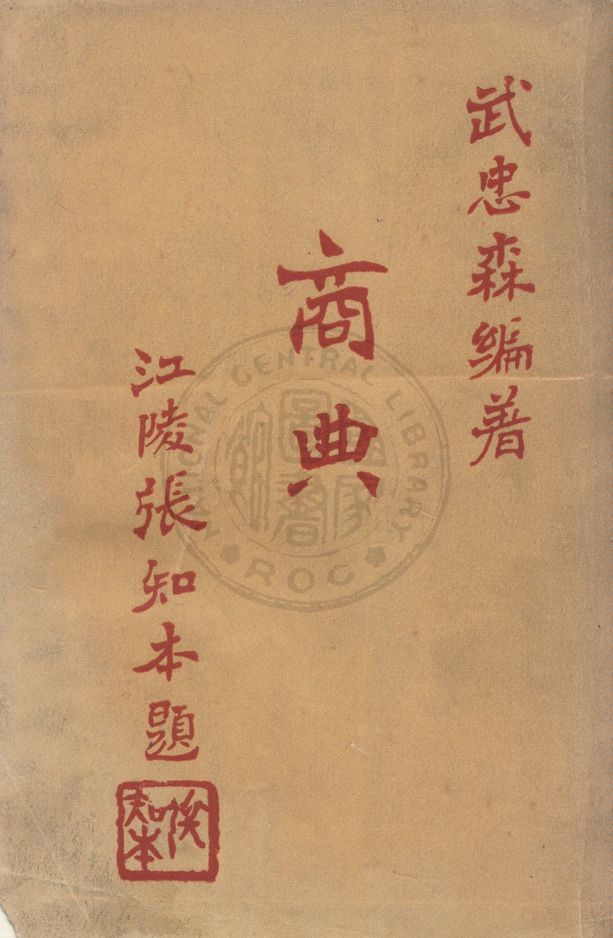 武忠森編著
商典
江陵張知本題
知本
NATIONAL CENTRAL LIBRARY
ROC
國家圖書館